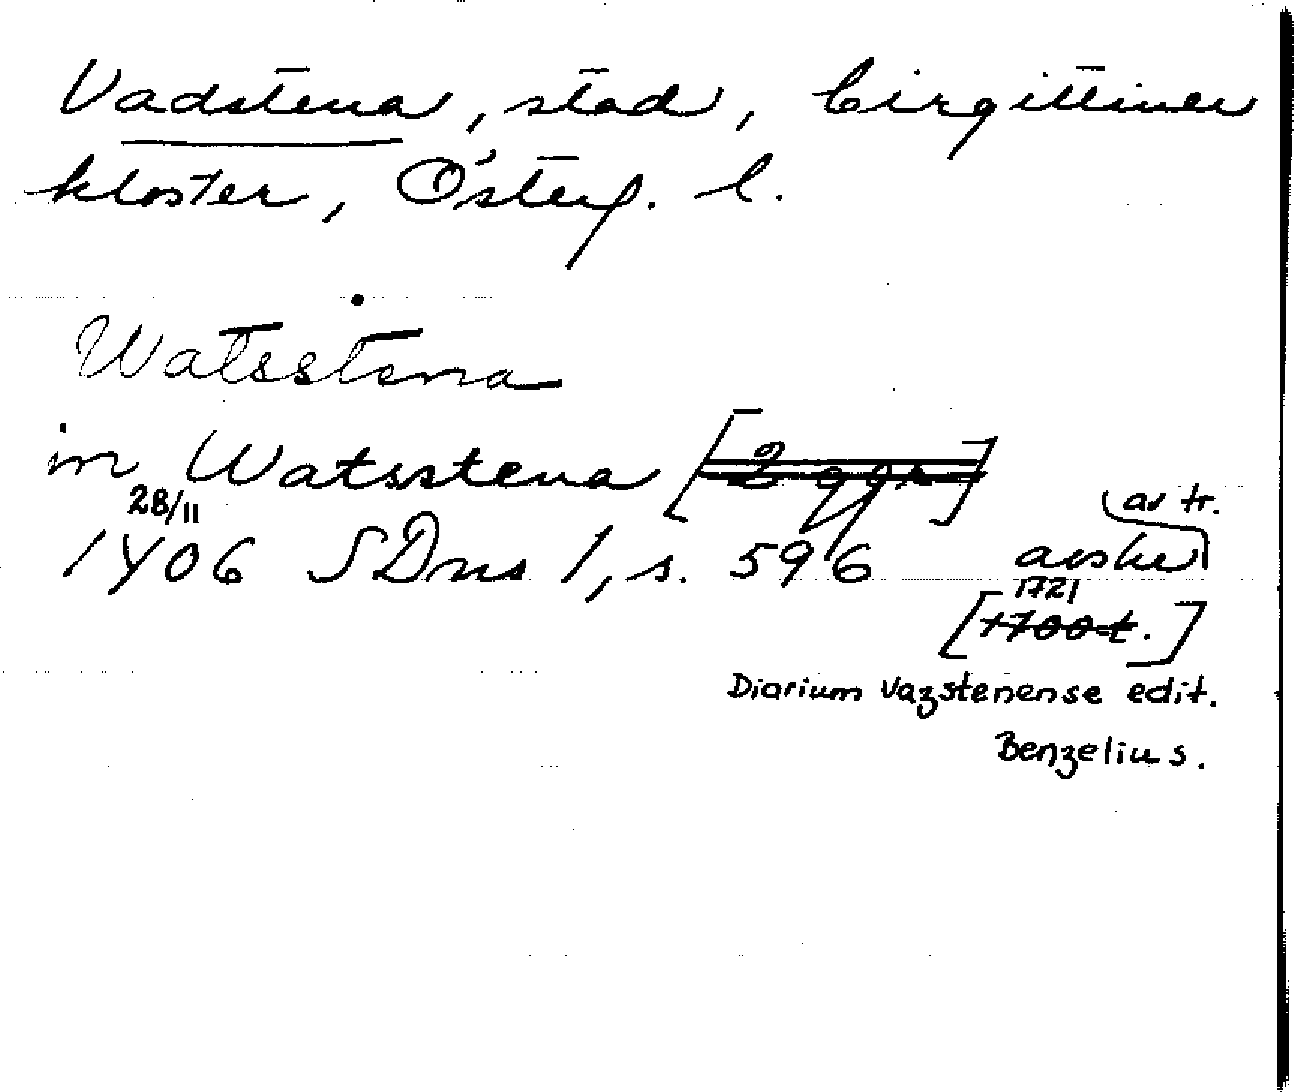 Vadstena, stad, birgittiner
kloster, Österg. l.
Watsstena
in Watsstena [2 ggr]
28/11
1406 SDns 1, s. 596 avskr
av tr.
1721
[1700-t.]
Diarium Vazstenense edit.
Benzelius.